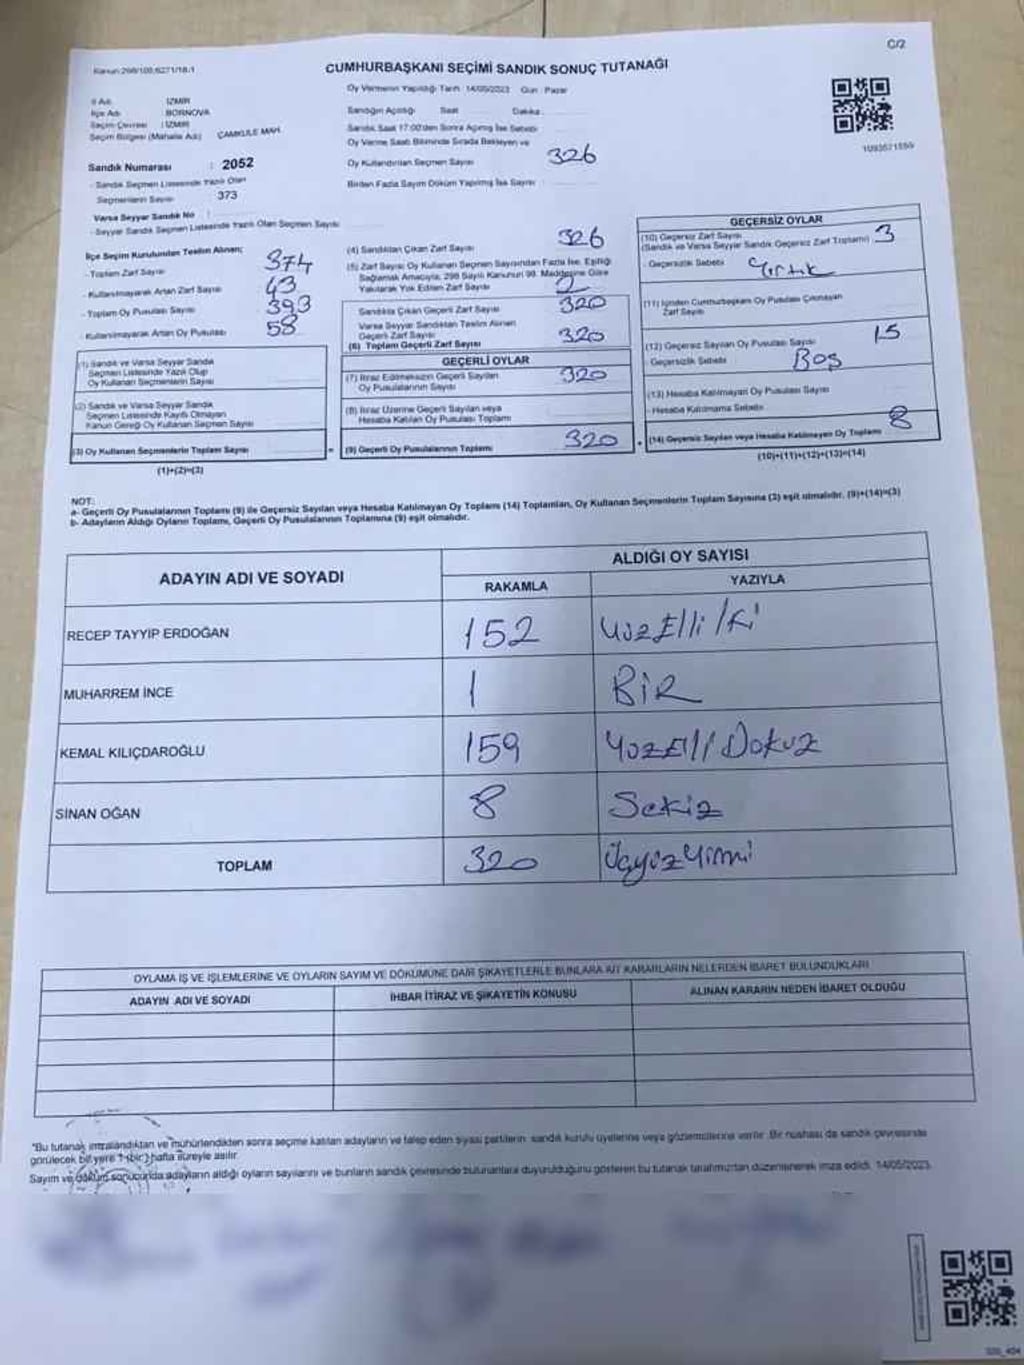 C/2
Kanun:298/105;6271/18-1
CUMHURBAŞKANI SEÇİMİ SANDIK SONUÇ TUTANAĞI
Oy Vermenin Yapıldığı Tarih 14/05/2023 Gün : Pazar
İl Adı : İZMİR
İlçe Adı : BORNOVA
Seçim Çevresi : İZMİR
Seçim Bölgesi (Mahalle Adı) ÇAMKULE MAH.
Sandık Numarası : 2052
- Sandık Seçmen Listesinde Yazılı Olan
Seçmenlerin Sayısı 373
Varsa Seyyar Sandık No :
- Seyyar Sandık Seçmen Listesinde Yazılı Olan Seçmen Sayısı
Sandığın Açıldığı Saat Dakika
Sandık Saat 17:00'den Sonra Açılmış İse Sebebi
Oy Verme Saati Bitiminde Sırada Bekleyen ve
Oy Kullandırılan Seçmen Sayısı 326
Birden Fazla Sayım Döküm Yapılmış İse Sayısı
1093571559
İlçe Seçim Kurulundan Teslim Alınan;
- Toplam Zarf Sayısı 374
- Kullanılmayarak Artan Zarf Sayısı 43
- Toplam Oy Pusulası Sayısı 393
- Kullanılmayarak Artan Oy Pusulası 58
(1) Sandık ve Varsa Seyyar Sandık
Seçmen Listesinde Yazılı Olup
Oy Kullanan Seçmenlerin Sayısı
(2) Sandık ve Varsa Seyyar Sandık
Seçmen Listesinde Kayıtlı Olmayan
Kanun Gereği Oy Kullanan Seçmen Sayısı
(3) Oy Kullanan Seçmenlerin Toplam Sayısı
(1)+(2)=(3)
(4) Sandıktan Çıkan Zarf Sayısı 326
(5) Zarf Sayısı Oy Kullanan Seçmen Sayısından Fazla İse, Eşitliği
Sağlamak Amacıyla, 298 Sayılı Kanunun 98. Maddesine Göre
Yakılarak Yok Edilen Zarf Sayısı 2
Sandıkta Çıkan Geçerli Zarf Sayısı 320
Varsa Seyyar Sandıktan Teslim Alınan
Geçerli Zarf Sayısı
(6) Toplam Geçerli Zarf Sayısı 320
GEÇERLİ OYLAR
(7) İtiraz Edilmeksizin Geçerli Sayılan
Oy Pusulalarının Sayısı 320
(8) İtiraz Üzerine Geçerli Sayılan veya
Hesaba Katılan Oy Pusulası Toplamı
(9) Geçerli Oy Pusulalarının Toplamı 320
GEÇERSİZ OYLAR
(10) Geçersiz Zarf Sayısı
(Sandık ve Varsa Seyyar Sandık Geçersiz Zarf Toplamı) 3
- Geçersizlik Sebebi Yırtık
(11) İçinden Cumhurbaşkanı Oy Pusulası Çıkmayan
Zarf Sayısı
(12) Geçersiz Sayılan Oy Pusulası Sayısı 15
- Geçersizlik Sebebi Boş
(13) Hesaba Katılmayan Oy Pusulası Sayısı
- Hesaba Katılmama Sebebi
(14) Geçersiz Sayılan veya Hesaba Katılmayan Oy Toplamı 8
(10)+(11)+(12)+(13)=(14)
NOT:
a- Geçerli Oy Pusulalarının Toplamı (9) ile Geçersiz Sayılan veya Hesaba Katılmayan Oy Toplamı (14) Toplamları, Oy Kullanan Seçmenlerin Toplam Sayısına (3) eşit olmalıdır. (9)+(14)=(3)
b- Adayların Aldığı Oyların Toplamı, Geçerli Oy Pusulalarının Toplamına (9) eşit olmalıdır.
ADAYIN ADI VE SOYADI
ALDIĞI OY SAYISI
RAKAMLA YAZIYLA
RECEP TAYYİP ERDOĞAN 152 YüzElli İki
MUHARREM İNCE 1 BİR
KEMAL KILIÇDAROĞLU 159 YüzElli Dokuz
SİNAN OĞAN 8 Sekiz
TOPLAM 320 ÜçyüzYirmi
OYLAMA İŞ VE İŞLEMLERİNE VE OYLARIN SAYIM VE DÖKÜMÜNE DAİR ŞİKAYETLERLE BUNLARA AİT KARARLARIN NELERDEN İBARET BULUNDUKLARI
ADAYIN ADI VE SOYADI İHBAR İTİRAZ VE ŞİKAYETİN KONUSU ALINAN KARARIN NEDEN İBARET OLDUĞU
*Bu tutanak imzalandıktan ve mühürlendikten sonra seçime katılan adayların ve talep eden siyasi partilerin sandık kurulu üyelerine veya gözlemcilerine verilir. Bir nüshası da sandık çevresinde
görülecek bir yere 1 (bir) hafta süreyle asılır.
Sayım ve döküm sonucunda adayların aldığı oyların sayılarını ve bunların sandık çevresinde bulunanlara duyurulduğunu gösteren bu tutanak tarafımızdan düzenlenerek imza edildi. 14/05/2023